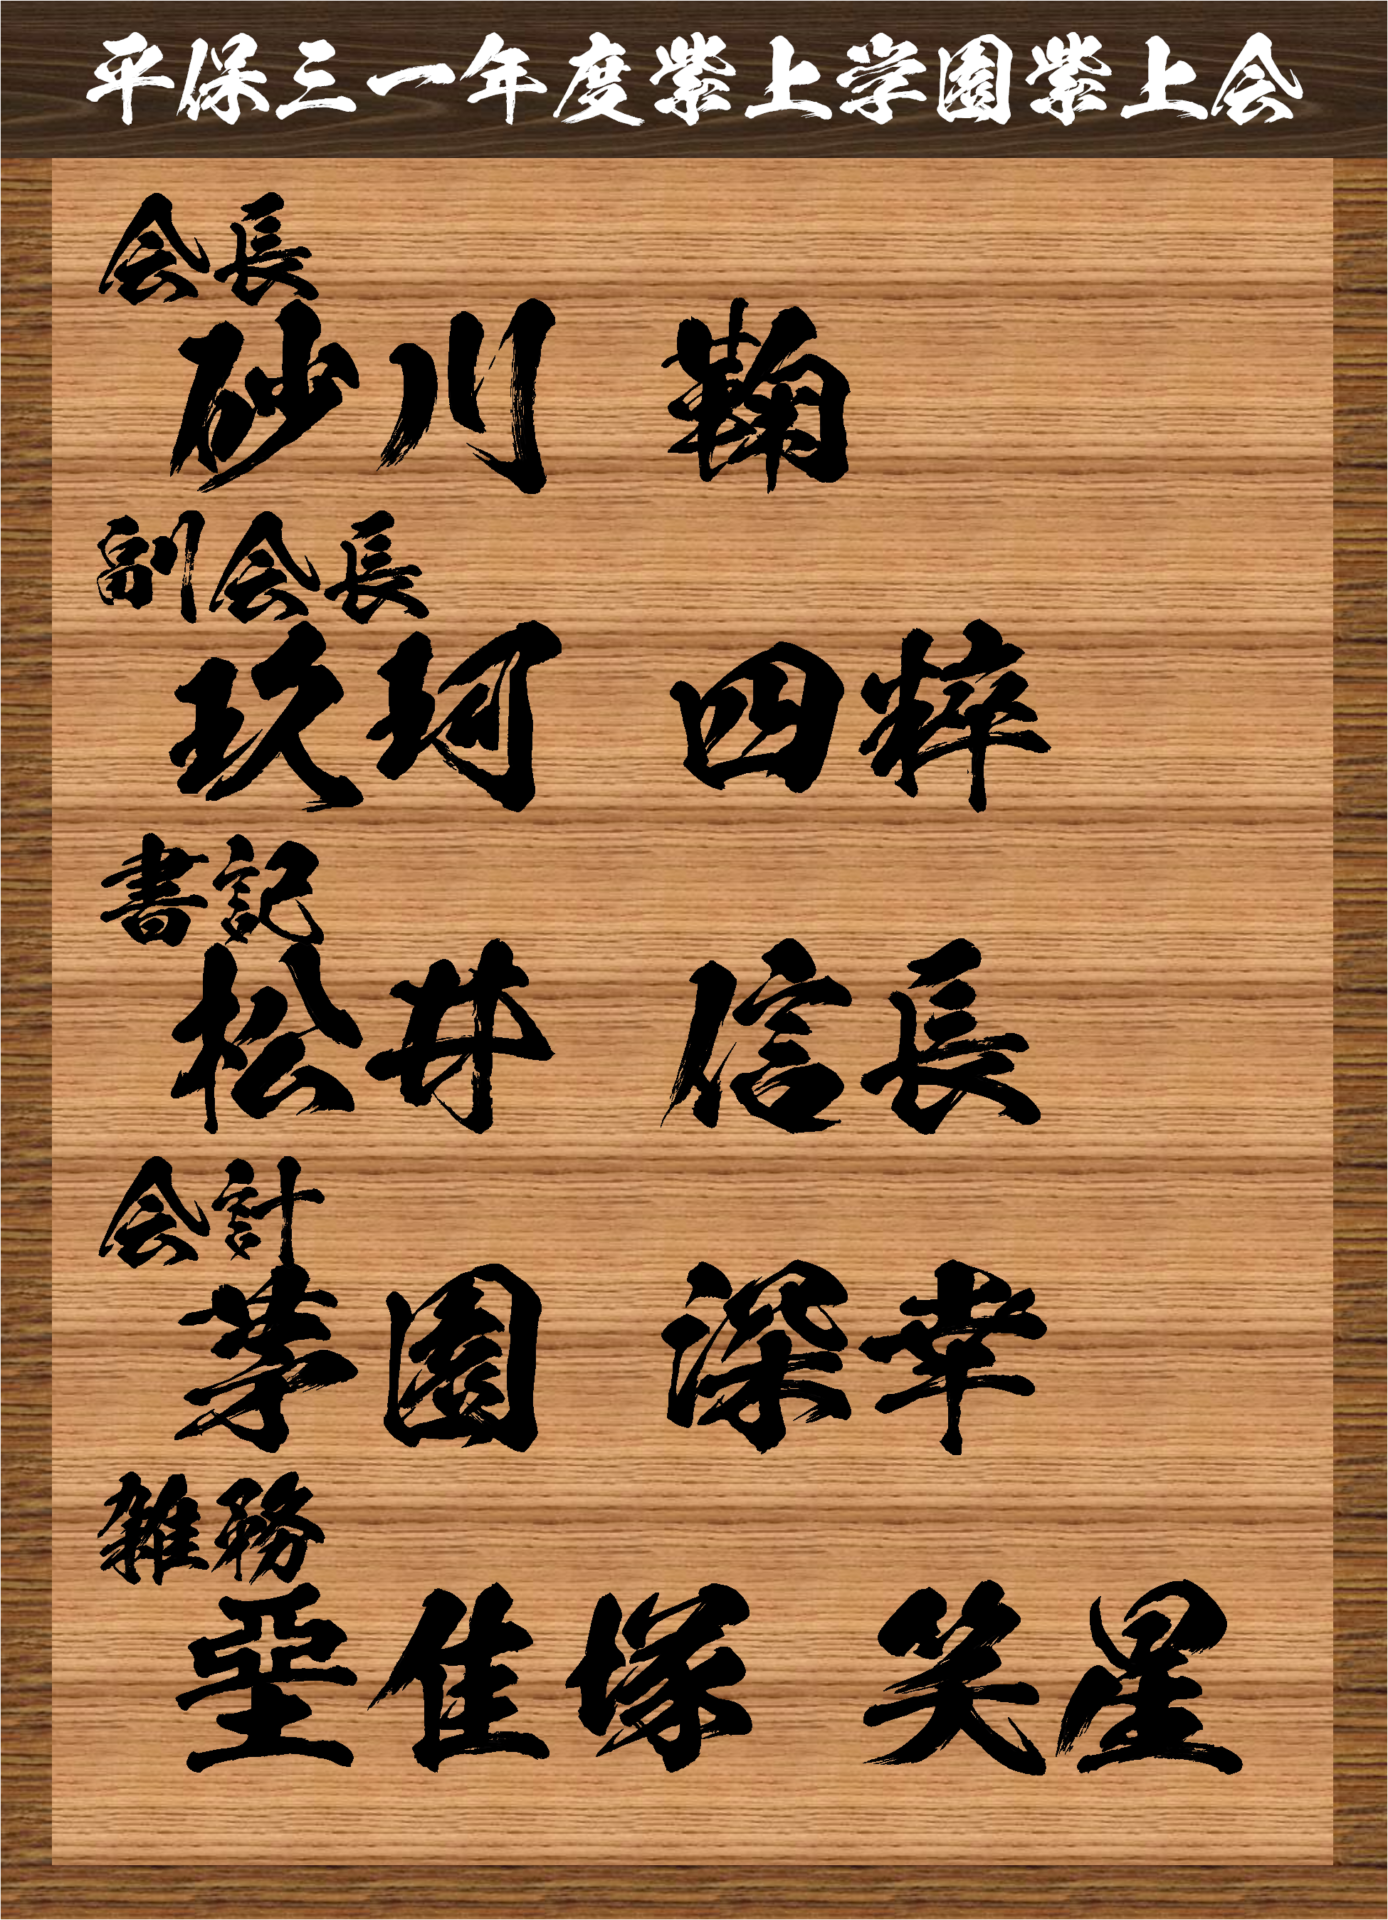 平保三一年度紫上学園紫上会
会長
砂川 鞠
副会長
玖珂 四粹
書記
松井 信長
会計
茅園 深幸
雑務
堊隹塚 笑星